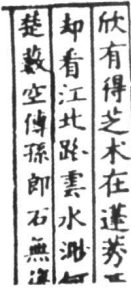 欣有得芝术在蓬莠
却看江北路雲水渺
楚藪空傳孫郎石無